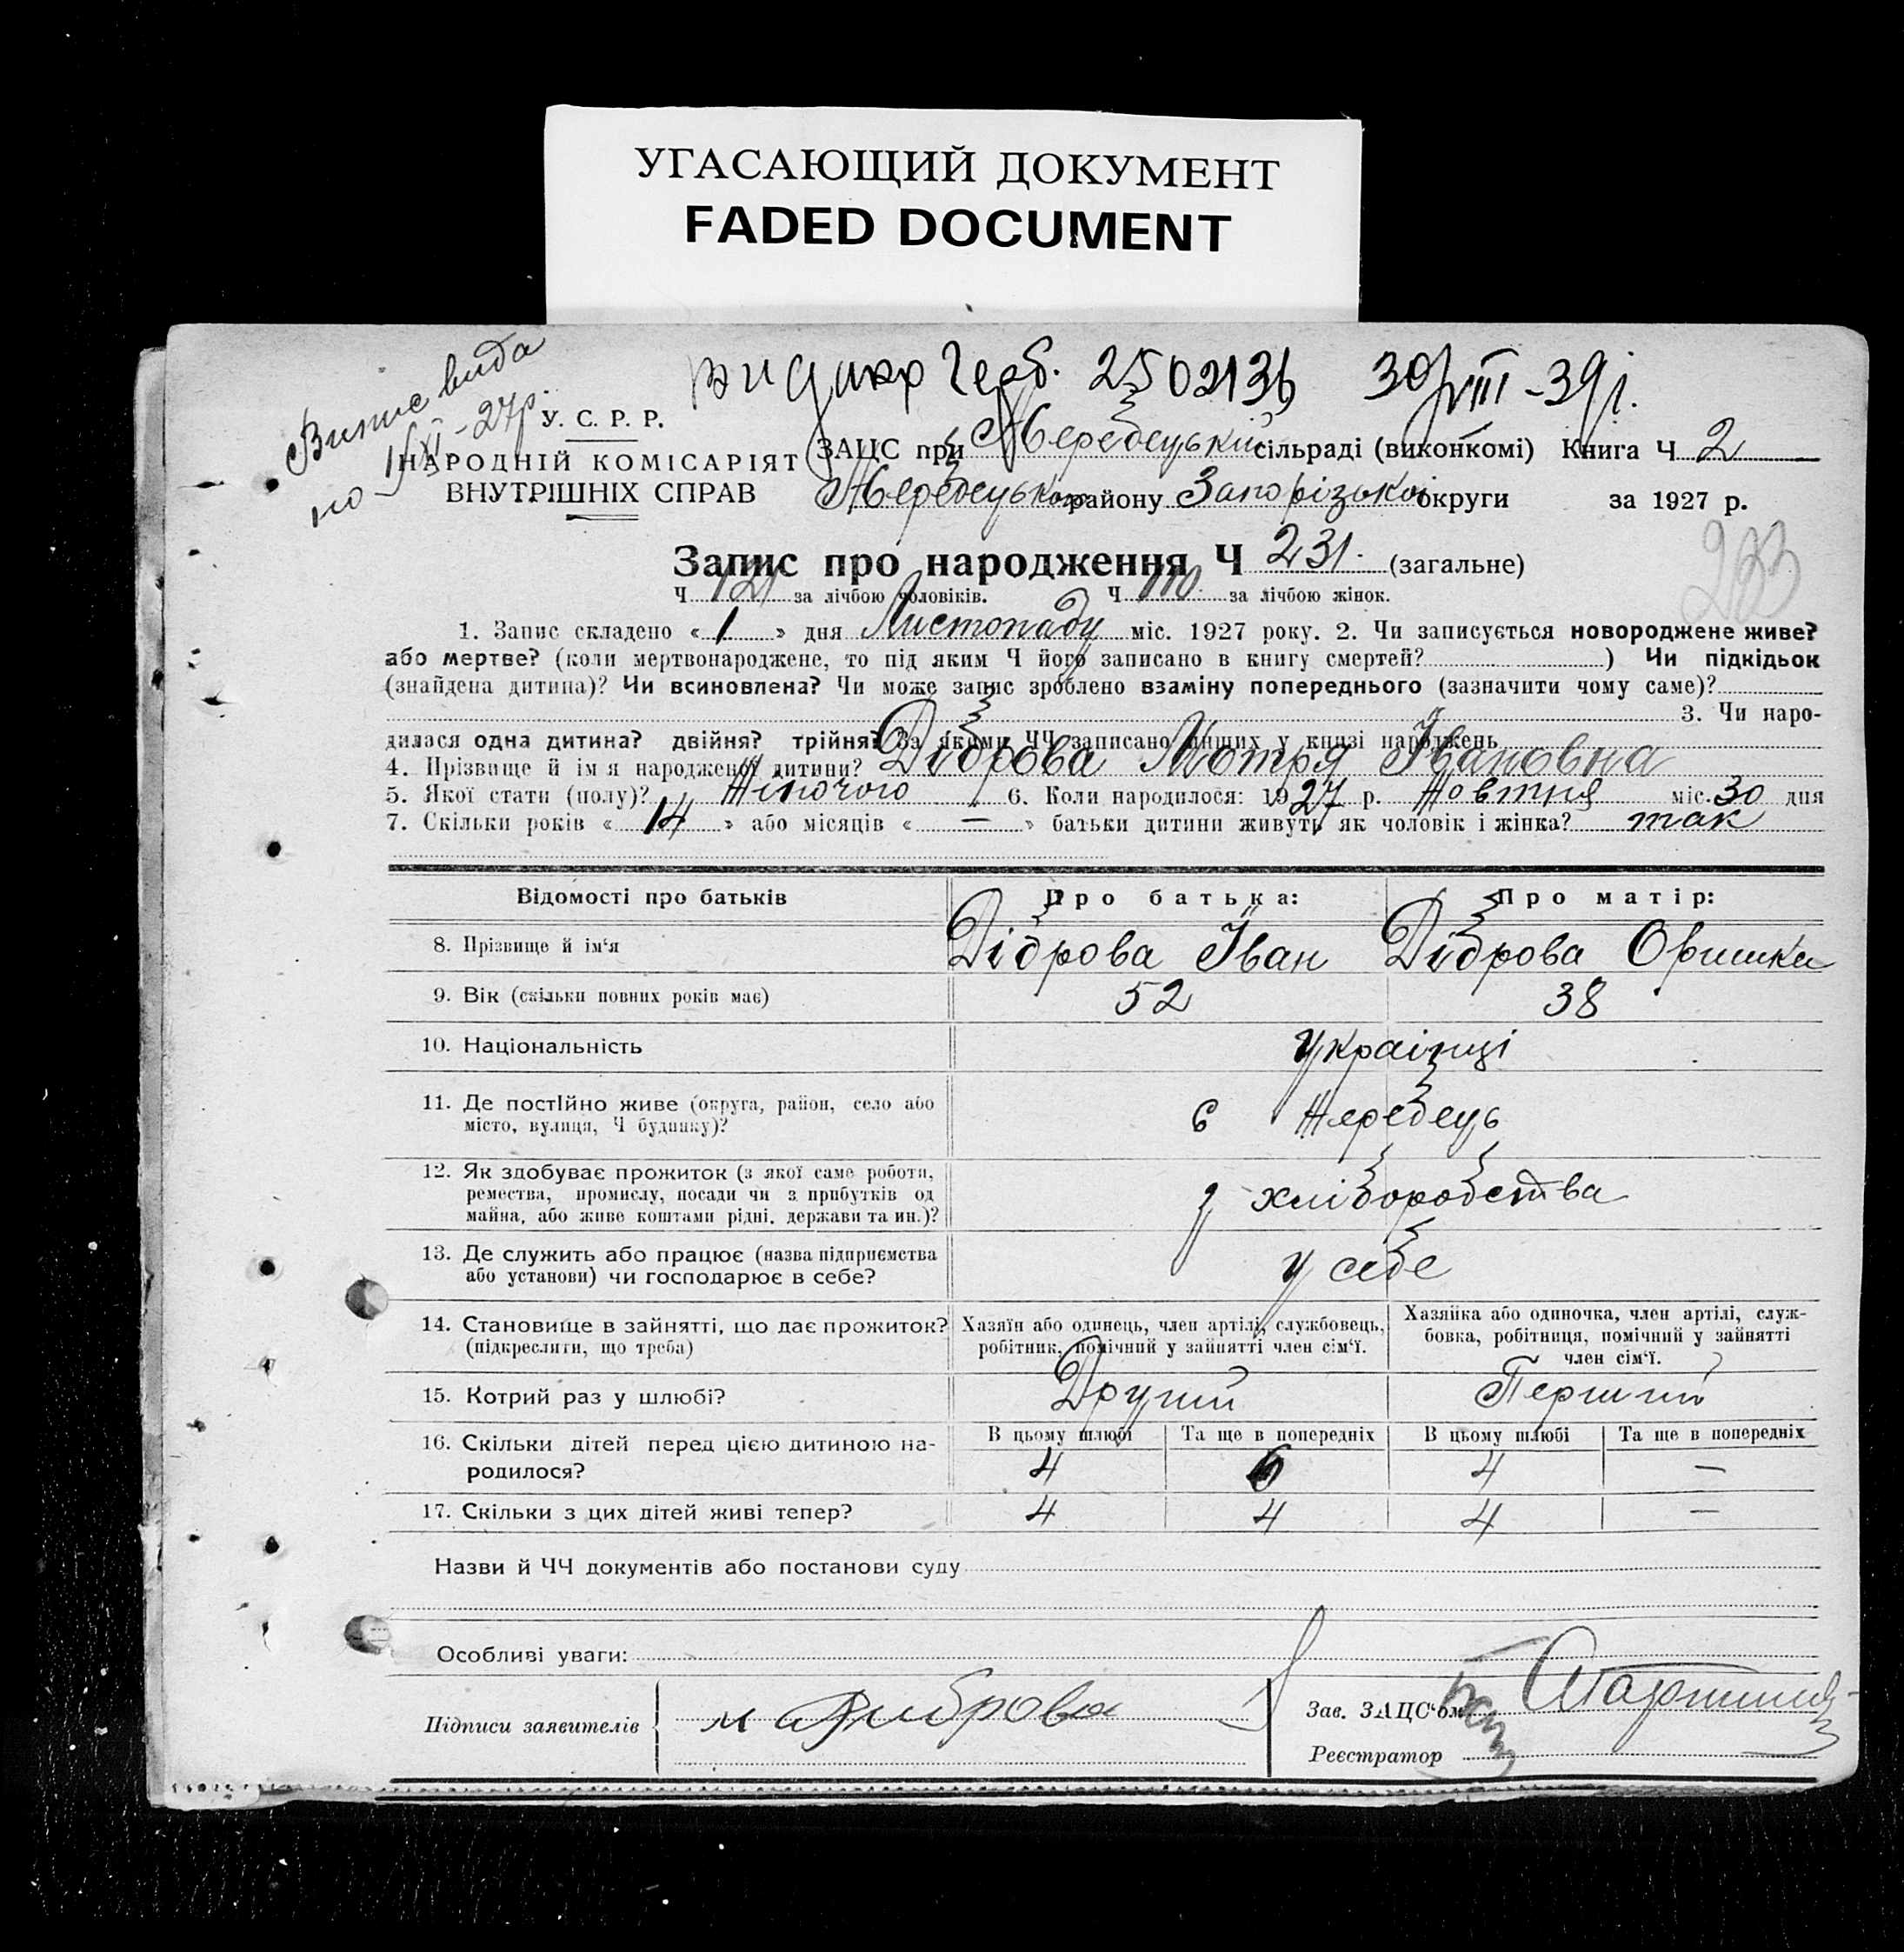 УГАСАЮЩИЙ ДОКУМЕНТ
FADED DOCUMENT
Випис вида
но 1/XI-27р.
герб. 2502136 30/VIII-39р.
У. С. Р. Р.
НАРОДНІЙ КОМІСАРІЯТ
ВНУТРІШНІХ СПРАВ
ЗАЦС при Жеребецький сільраді (виконкомі) Книга Ч 2
Жеребецького району Запорізької округи за 1927 р.
Запис про народження Ч 231. (загальне)
233
Ч 121 за лічбою чоловіків. Ч 110. за лічбою жінок.
1. Запис складено « 1 » дня Листопаду міс. 1927 року. 2. Чи записується новороджене живе?
або мертве? (коли мертвонароджене, то під яким Ч його записано в книгу смертей? ) Чи підкідьок
(знайдена дитина)? Чи всиновлена? Чи може запис зроблено взаміну попереднього (зазначити чому саме)?
3. Чи наро-
дилася одна дитина? двійня? трійня? За якими ЧЧ записано инших у книзі народжень
4. Прізвище й ім я народженої дитини? Діброва Мотря Івановна
5. Якої стати (полу)? Жіночого 6. Коли народилося: 1927 р. Жовтня міс. 30 дня
7. Скільки років « 14 » або місяців « — » батьки дитини живуть як чоловік і жінка? так
Відомості про батьків Про батька: Про матір:
8. Прізвище й ім‘я Діброва Іван Діброва Оришка
9. Вік (скільки повних років має) 52 38
10. Національність Українці
11. Де постІйно живе (округа, район, село або
місто, вулиця, Ч будинку)?
с Жеребець
12. Як здобуває прожиток (з якої саме роботи,
ремества, промислу, посади чи з прибутків од
майна, або живе коштами рідні, держави та ин.)?
з хліборобства
13. Де служить або працює (назва підприємства
або установи) чи господарює в себе?
у себе
14. Становище в зайнятті, що дає прожиток?
(підкреслити, що треба)
Хазяїн або одинець, член артілі, службовець,
робітник, помічний у зайнятті член сім‘ї.
Хазяйка або одиночка, член артілі, служ-
бовка, робітниця, помічний у зайнятті
член сім‘ї.
15. Котрий раз у шлюбі? Другий Перший
16. Скільки дітей перед цією дитиною на-
родилося?
В цьому шлюбі Та ще в попередніх В цьому шлюбі Та ще в попередніх
4 6 4 —
17. Скільки з цих дітей живі тепер? 4 4 4 —
Назви й ЧЧ документів або постанови суду
Особливі уваги:
Підписи заявителів Диброва
Зав. ЗАЦС‘ом
Реєстратор